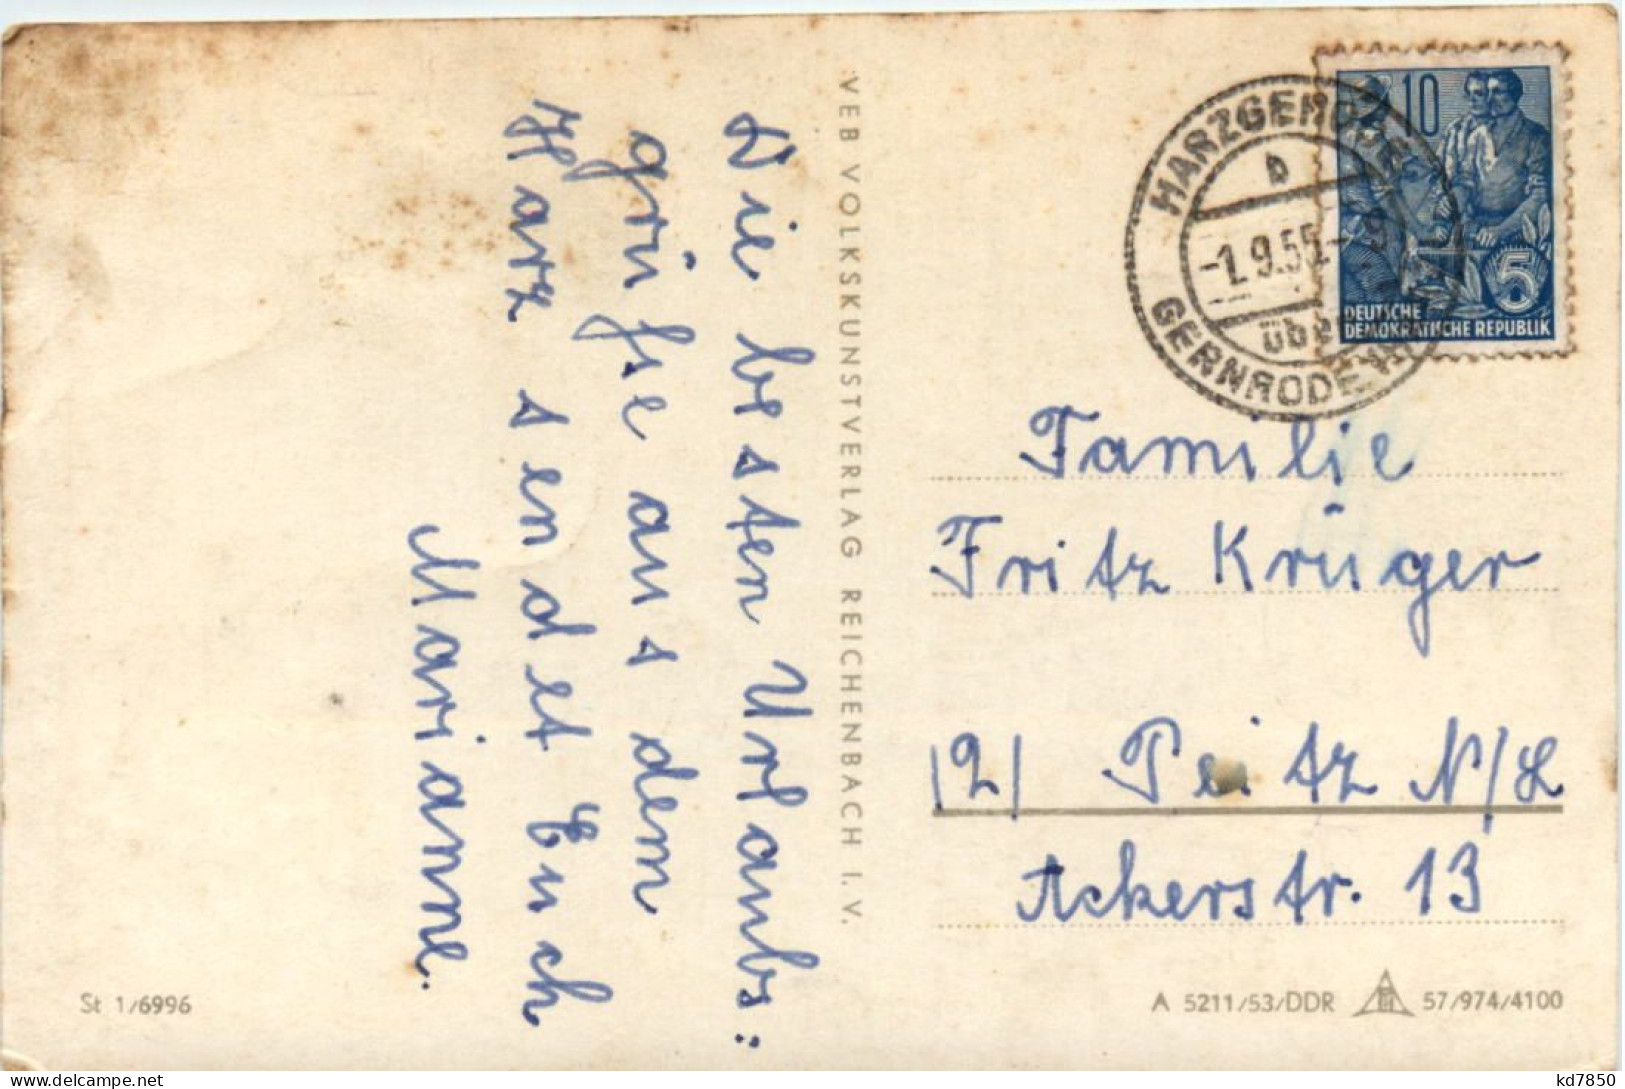 Die besten Urlaubs:
grüße aus dem
Harz sendet Euch
Marianne.
VEB VOLKSKUNSTVERLAG REICHENBACH I. V.
HARZGERODE
b
-1.9.55-9
über
GERNRODE
10
5
DEUTSCHE
DEMOKRATISCHE REPUBLIK
Familie
Fritz Krüger
(2) Peitz N/L
Ackerstr. 13
St 1/6996
A 5211/53/DDR 57/974/4100
kd7850